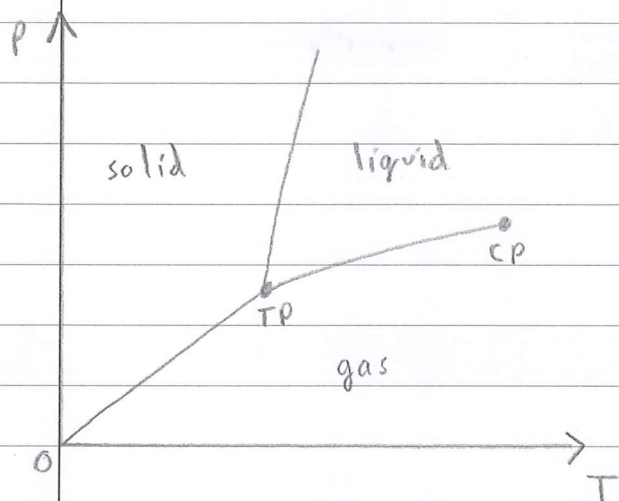 P
solid
liquid
CP
TP
gas
0
T